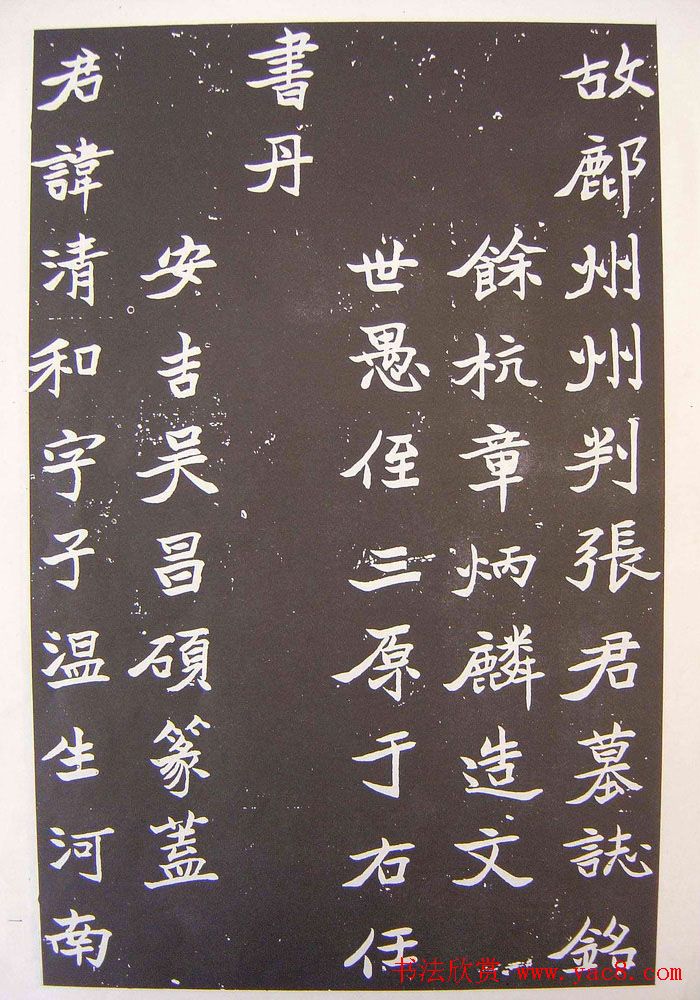 故鄜州州判張君墓誌銘
餘杭章炳麟造文
世愚侄三原于右任
書丹
安吉吴昌碩篆蓋
君諱清和字子温生河南
书法欣赏 www.yac8.com